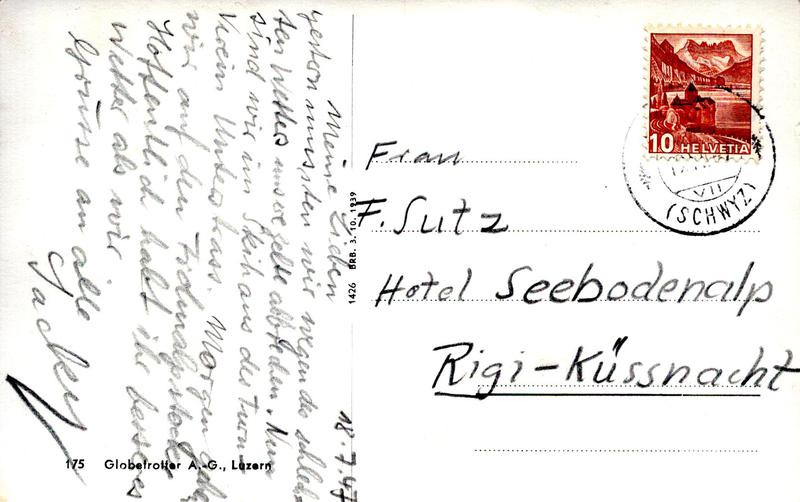 18.7.47
Meine Lieben
gestern mussten wir wegen des schlech-
ten Wetters unsere Zelte abbrechen. Nun
sind wir im Skihaus des Turn
Verein Unterstrass. Morgen gehen
wir auf den Fridolinspitz
Hoffentlich habt ihr besseres
Wetter als wir
Grüsse an alle
Jacky
175 Globetrotter A.-G., Luzern
1426 BRB. 3. 10. 1939
10 HELVETIA
VII
(SCHWYZ)
Frau
F. Sutz
Hotel Seebodenalp
Rigi-Küssnacht